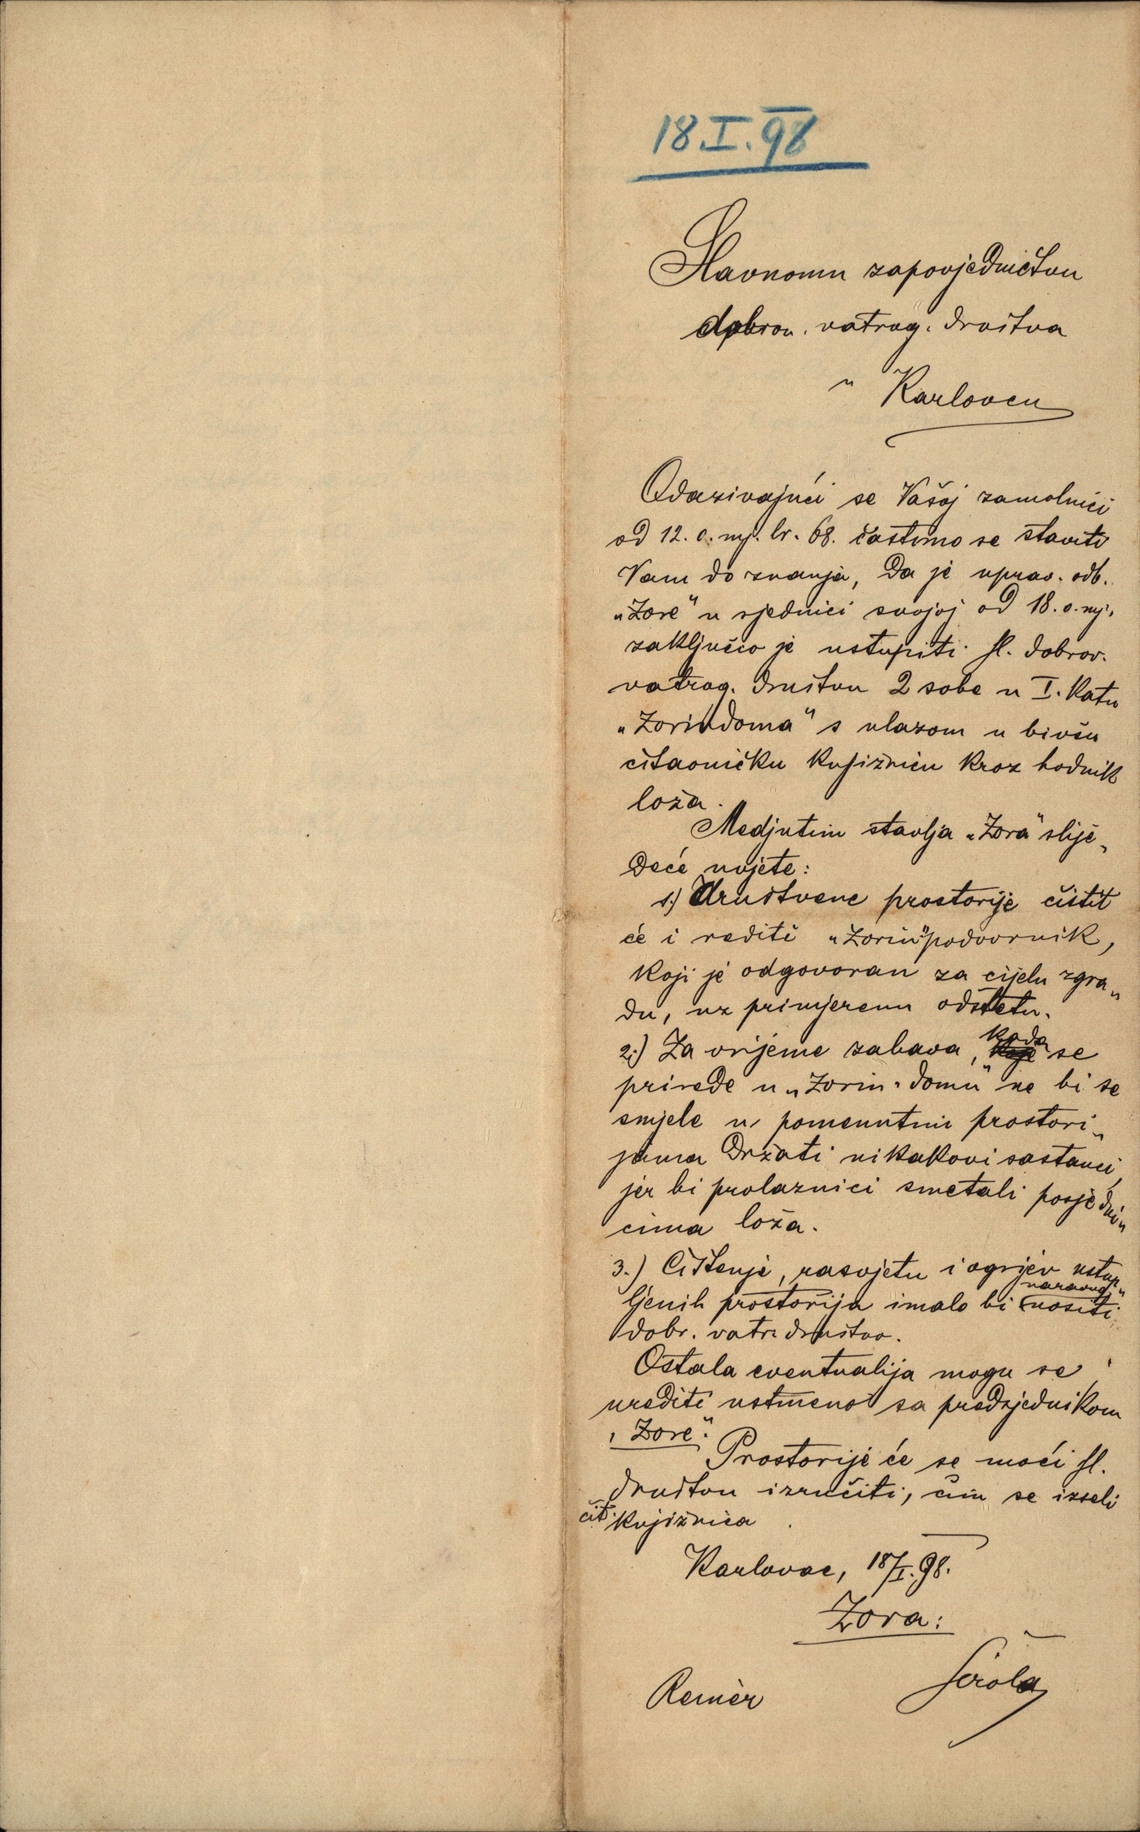 18.I.98
Slavnomu zapovjedničtvu
dobrov. vatrog. društva
u Karlovcu
Odazivajući se Vašoj zamolnici
od 12. o. mj. br. 68. častimo se staviti
Vam do znanja, da je uprav. odb.
„Zore" u sjednici svojoj od 18. o. mj.
zaključio je ustupiti sl. dobrov.
vatrog. društvu 2 sobe u I. katu
„Zorin doma" s ulazom u bivšu
čitaoničku knjižnicu kroz hodnik
loža.
Medjutim stavlja „Zora" slije„
deće uvjete:
1.) Društvene prostorije čistit
će i rediti „Zorin" podvornik,
koji je odgovoran za cijelu zgra„
du, uz primjerenu odštetu.
2.) Za vrijeme zabava, kada se
prirede u „Zorin-domu" ne bi se
smjele u pomenutim prostori„
jama držati nikakovi sastanci,
jer bi prolaznici smetali posjedni„
cima loža.
3.) Čišćenje, rasvjetu i ogrjev ustup„
ljenih prostorija imalo bi naravno nositi
dobr. vatr. društvo.
Ostala eventualija mogu se
urediti ustmeno sa predsjednikom
„Zore".
Prostorije će se moći sl.
društvu izručiti, čim se izseli
čit. knjižnica.
Karlovac, 18/I. 98.
Zora:
Reiner